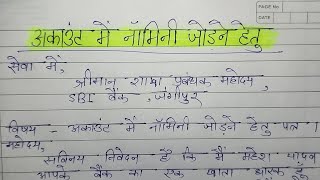 Page No
DATE
अकाउंट में नॉमिनी जोड़ने हेतु
सेवा में,
श्रीमान शाखा प्रबंधक महोदय,
SBI बैंक, जंगीपुर
विषय - अकाउंट में नॉमिनी जोड़ने हेतु पत्र।
महोदय,
सविनय निवेदन है कि मैं महेश यादव
आपके बैंक का एक खाता धारक हूँ